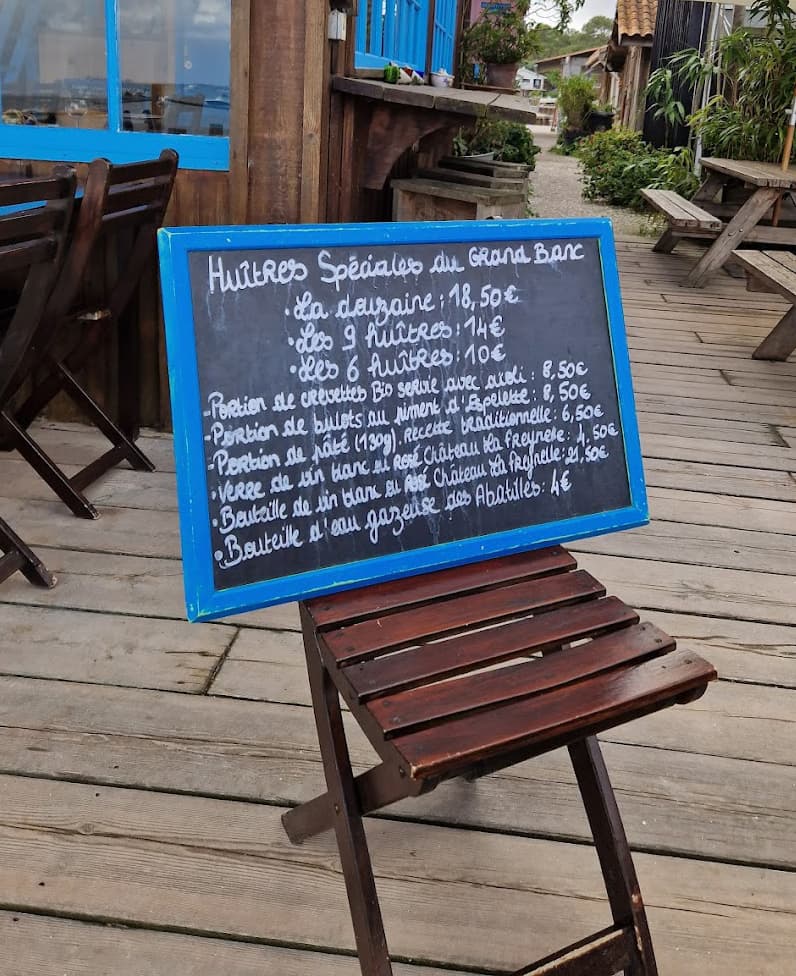 Huîtres Spéciales du Grand Banc
• La douzaine : 18,50€
• Les 9 huîtres : 14€
• Les 6 huîtres : 10€
- Portion de crevettes Bio servie avec aïoli : 8,50€
- Portion de bulots au piment d'Espelette : 8,50€
- Portion de pâté (130g). Recette traditionnelle : 6,50€
• Verre de vin blanc ou Rosé Château La Freynelle : 4,50€
• Bouteille de vin blanc ou Rosé Château La Freynelle : 21,50€
• Bouteille d'eau gazeuse des Abatilles : 4€